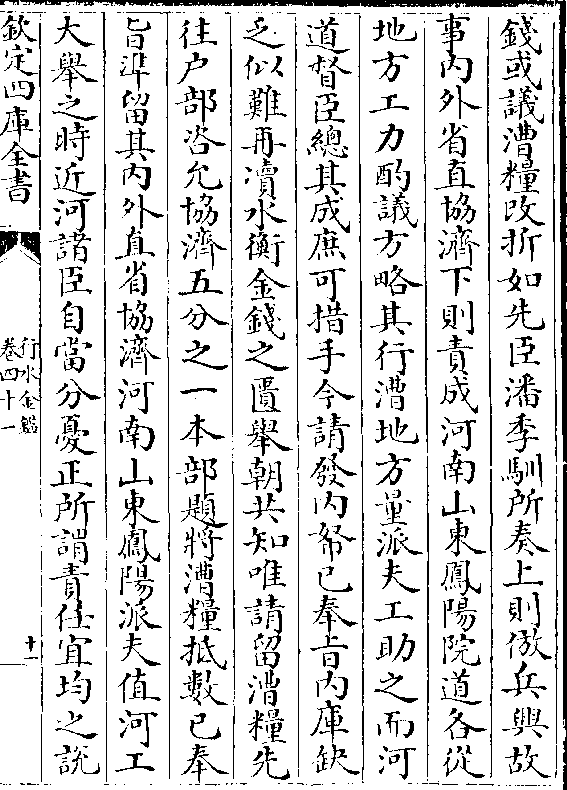 錢或議漕糧改折如先臣潘季馴所奏上則倣兵興故
事內外省直協濟下則責成河南山東鳳陽院道各從
地方工力酌議方略其行漕地方量派夫工助之而河
道督臣總其成庶可措手今請發內帑已奉旨內庫缺
乏似難再瀆水衡金錢之匱舉朝共知唯請留漕糧先
往户部咨允協濟五分之一本部題將漕糧抵數已奉
旨准留其內外直省協濟河南山東鳳陽派夫值河工
大舉之時近河諸臣自當分憂正所謂責任宜均之說
欽定四庫全書
行水金鑑
卷四十一
十一